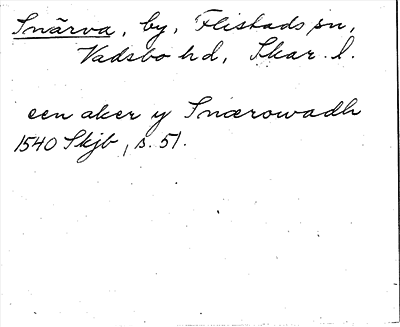 Snärva, by, Flistads sn,
Vadsbo hd, Skar. l.
een aker y Snærowadh
1540 Skjb, s. 51.